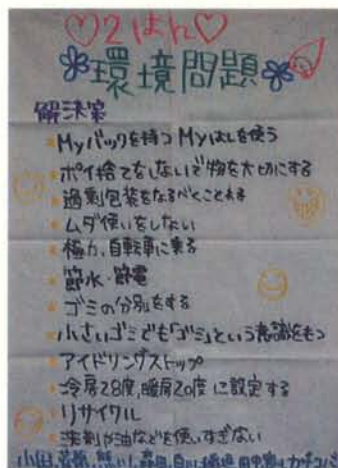 ♡2はん♡
環境問題
解決案
Myバックを持つ Myはしを使う
ポイ捨てをしないで物を大切にする
過剰包装をなるべくことわる
ムダ使いをしない
極力、自転車に乗る
節水・節電
ゴミの分別をする
小さいゴミでも「ゴミ」という意識をもつ
アイドリングストップ
冷房28度,暖房20度に設定する
リサイクル
洗剤や油などを使いすぎない